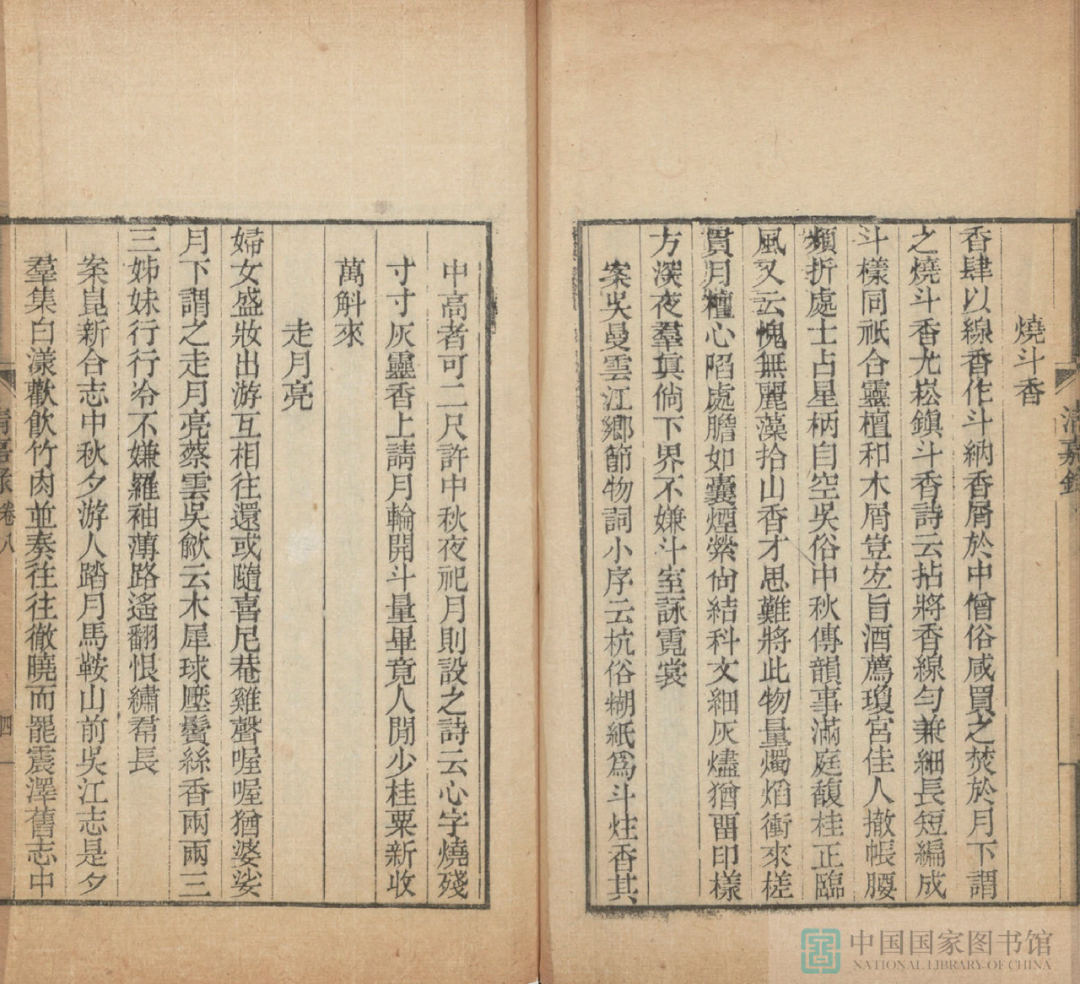 清嘉錄
燒斗香
香肆以線香作斗納香屑於中僧俗咸買之焚於月下謂
之燒斗香尤崧鎮斗香詩云拈將香線勻兼細長短編成
斗樣同祇合靈檀和木屑豈宐旨酒薦瓊宮佳人撤帳腰
頻折處士占星柄自空吳俗中秋傳韻事滿庭馥桂正臨
風又云愧無麗藻拾山香才思難將此物量燭焰衝來槎
貫月檀心陷處膽如囊煙縈尙結科文細灰燼猶畱印樣
方深夜羣真倘下界不嫌斗室詠霓裳
案吳曼雲江鄉節物詞小序云杭俗糊紙爲斗炷香其
中高者可二尺許中秋夜祀月則設之詩云心字燒殘
寸寸灰靈香上請月輪開斗量畢竟人閒少桂粟新收
萬斛來
走月亮
婦女盛妝出游互相往還或隨喜尼菴雞聲喔喔猶婆娑
月下謂之走月亮蔡雲吳歈云木犀球壓鬢絲香兩兩三
三姊妹行行冷不嫌羅袖薄路遙翻恨繡帬長
案崑新合志中秋夕游人踏月馬鞍山前吳江志是夕
羣集白漾歡飮竹肉並奏往往徹曉而罷震澤舊志中
清嘉錄 卷八 四
中国国家图书馆
NATIONAL LIBRARY OF CHINA